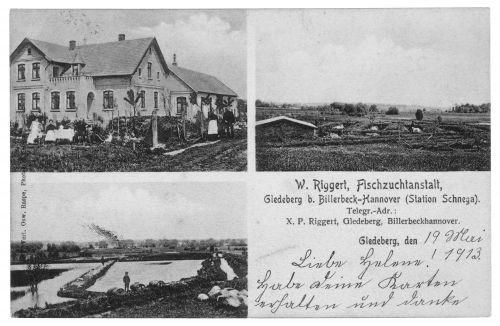 W. Riggert, Fischzuchtanstalt,
Gledeberg b. Billerbeck-Hannover (Station Schnega).
Telegr.-Adr.:
X. P. Riggert, Gledeberg, Billerbeckhannover.
Gledeberg, den 19 Mai
Liebe Helene! 1913
Habe deine Karten
erhalten und danke
Osw. Raspe, Phot